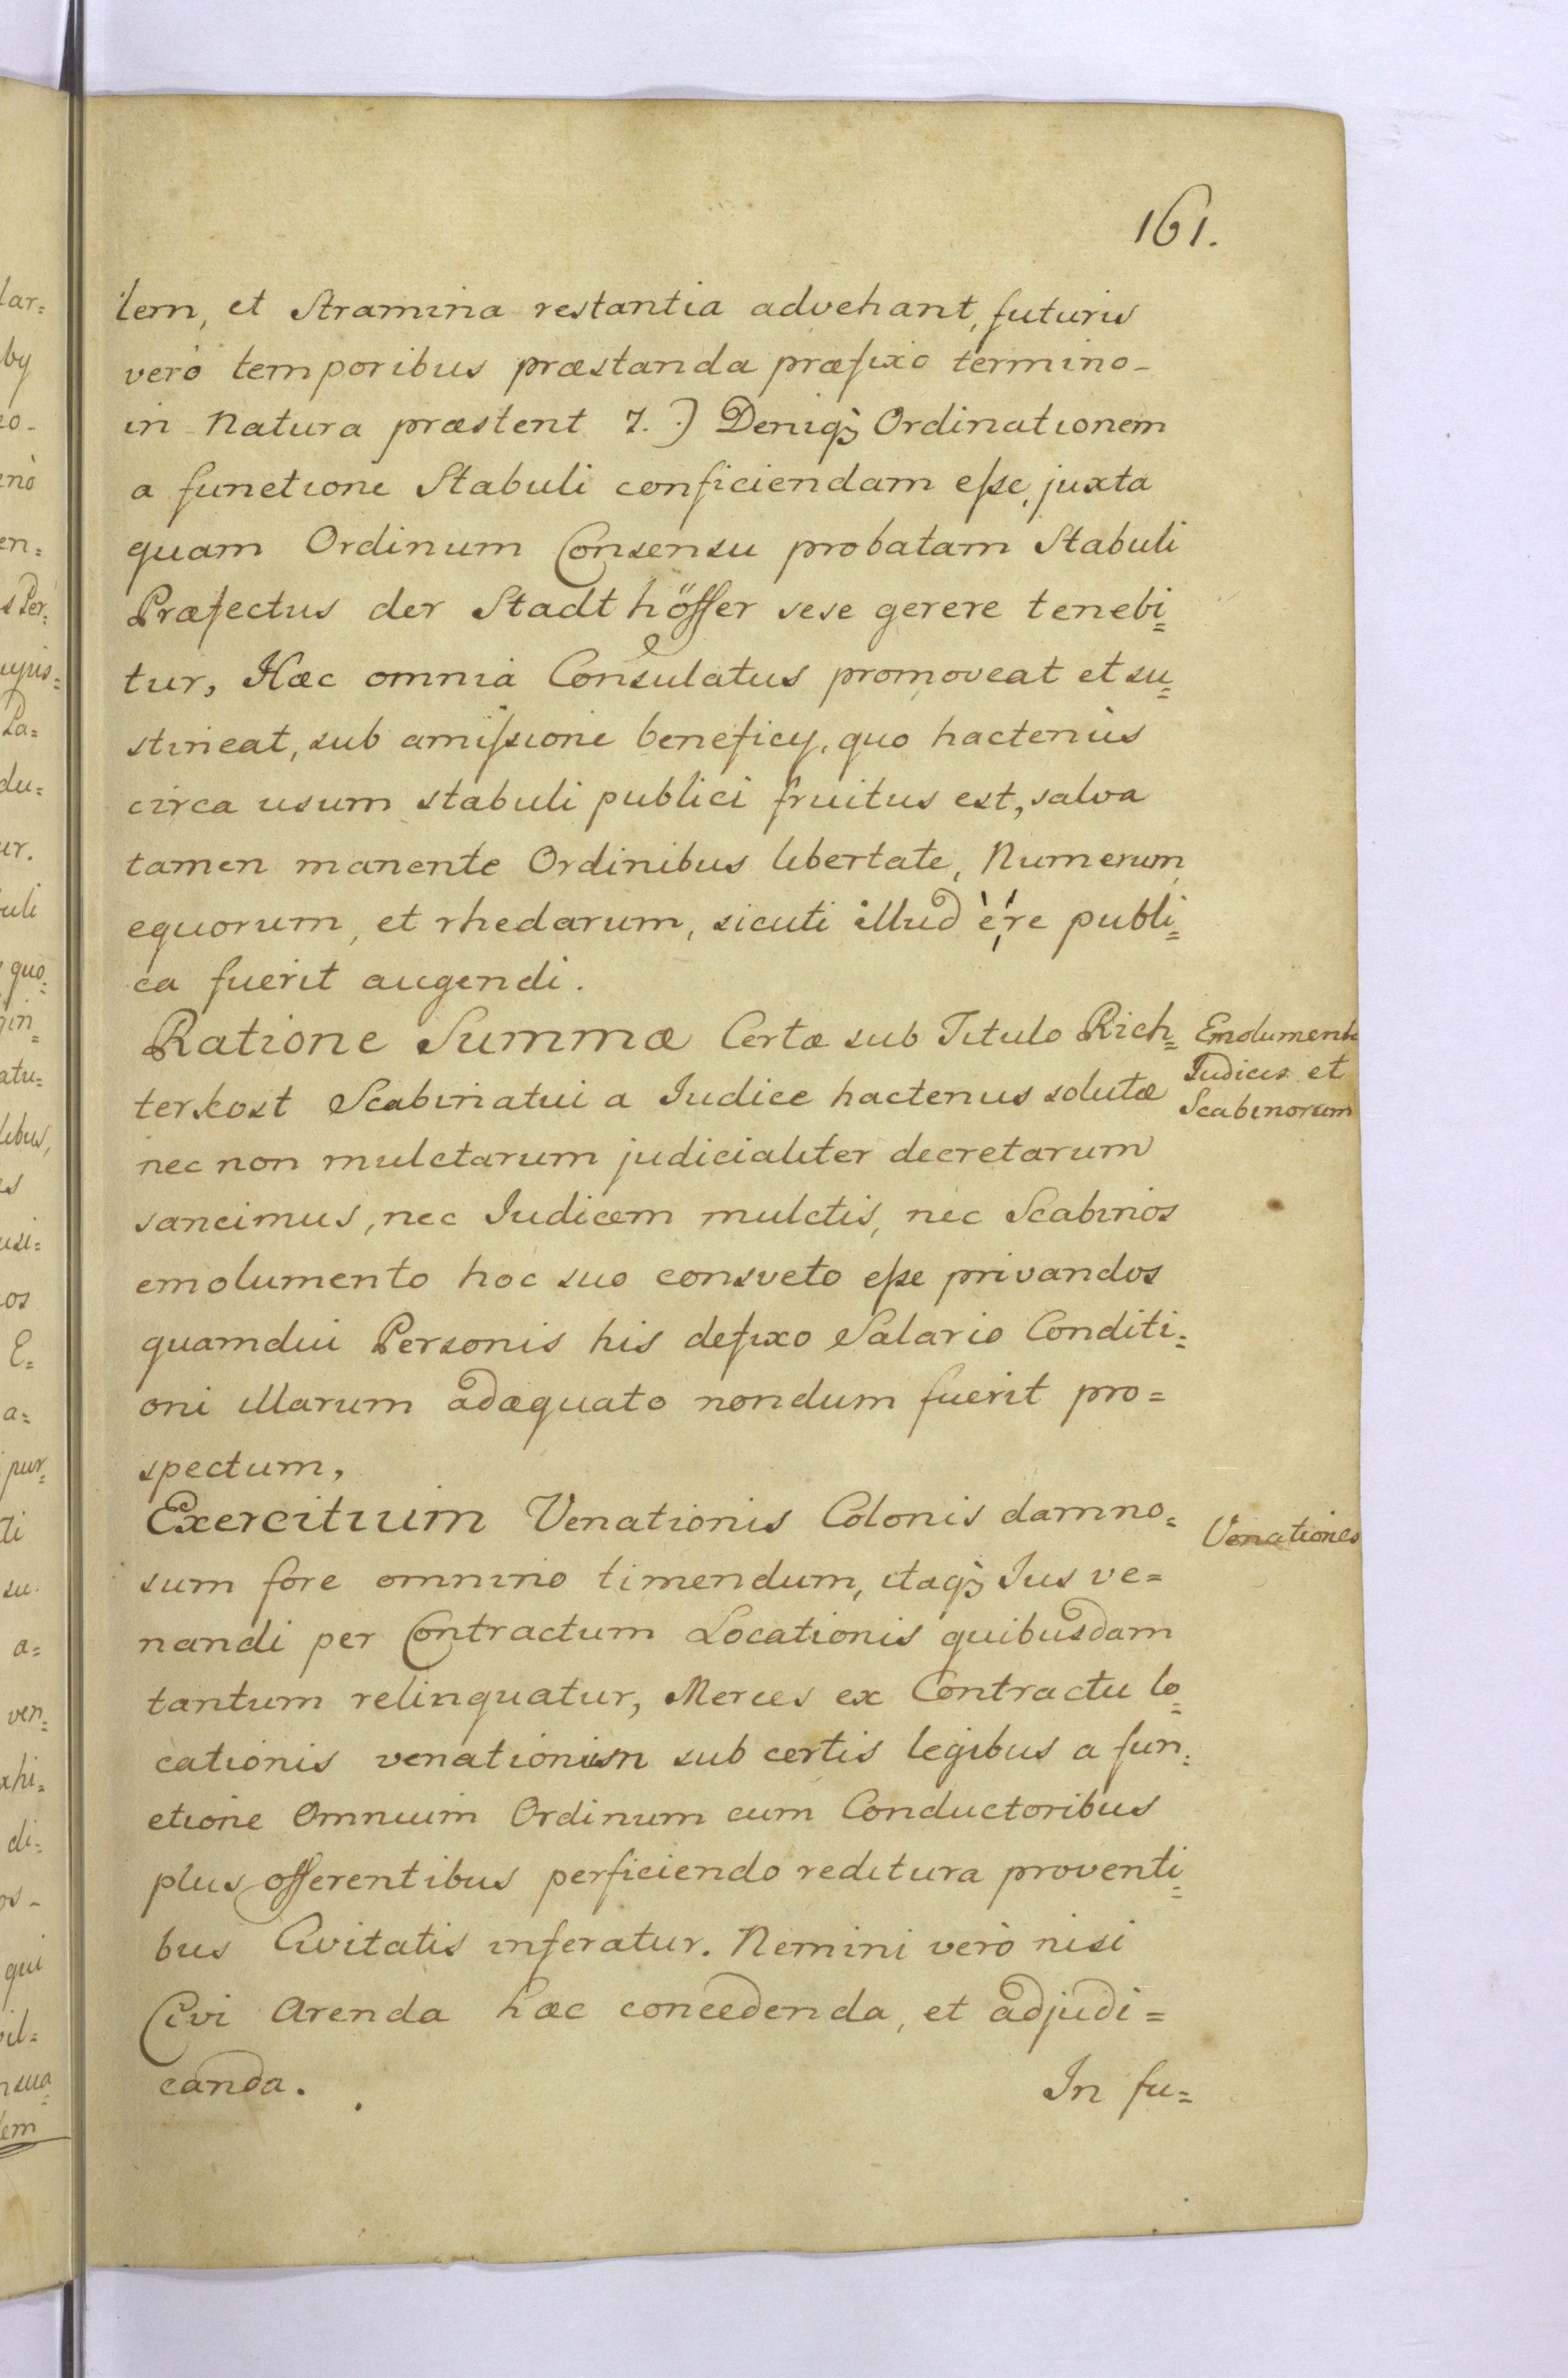 161.
lem, et Stramina restantia advehant, futuris
verò temporibus præstanda præfixo termino-
in Natura præstent 7.) Deniq₃ Ordinationem
a functione Stabuli conficiendam eſse, juxta
quam Ordinum Consensu probatam Stabuli
Præfectus der Stadt höffer sese gerere tenebi=
tur, Hæc omnia Consulatus promoveat et su=
stineat, sub amiſsione beneficij, quo hactenùs
circa usum stabuli publici fruitus est, salva
tamen manente Ordinibus libertate, Numerum
equorum, et rhedarum, sicuti illud è re publi=
ca fuerit augendi.
Ratione Summæ Certæ sub Titulo Rich=
terkost Scabinatui a Iudice hactenus solutæ
nec non mulctarum judicialiter decretarum
sancimus, nec Iudicem mulctis, nec Scabinos
emolumento hoc suo consveto eſse privandos
quamdiu Personis his defixo Salario Conditi=
oni illarum adæquato nondum fuerit pro=
spectum,
Emolumenta
Iudicis et
Scabinorum
Exercitium Venationis Colonis damno=
sum fore omnino timendum, itaq₃ Ius ve=
nandi per Contractum Locationis quibusdam
tantum relinquatur, Merces ex Contractu lo=
cationis venationum sub certis legibus a fun=
ctione Omnium Ordinum cum Conductoribus
plus offerentibus perficiendo reditura proventi=
bus Civitatis inferatur. Nemini verò nisi
Civi Arenda hæc concedenda, et adjudi=
canda.
Venationes
In fu=